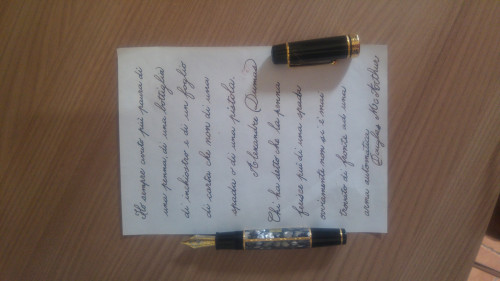 Ho sempre avuto più paura di
una penna, di una bottiglia
di inchiostro e di un foglio
di carta che non di una
spada o di una pistola.
Alexandre Dumas
Chi ha detto che la penna
ferisce più di una spada
ovviamente non si è mai
trovato di fronte ad una
arma automatica
Douglas MacArthur